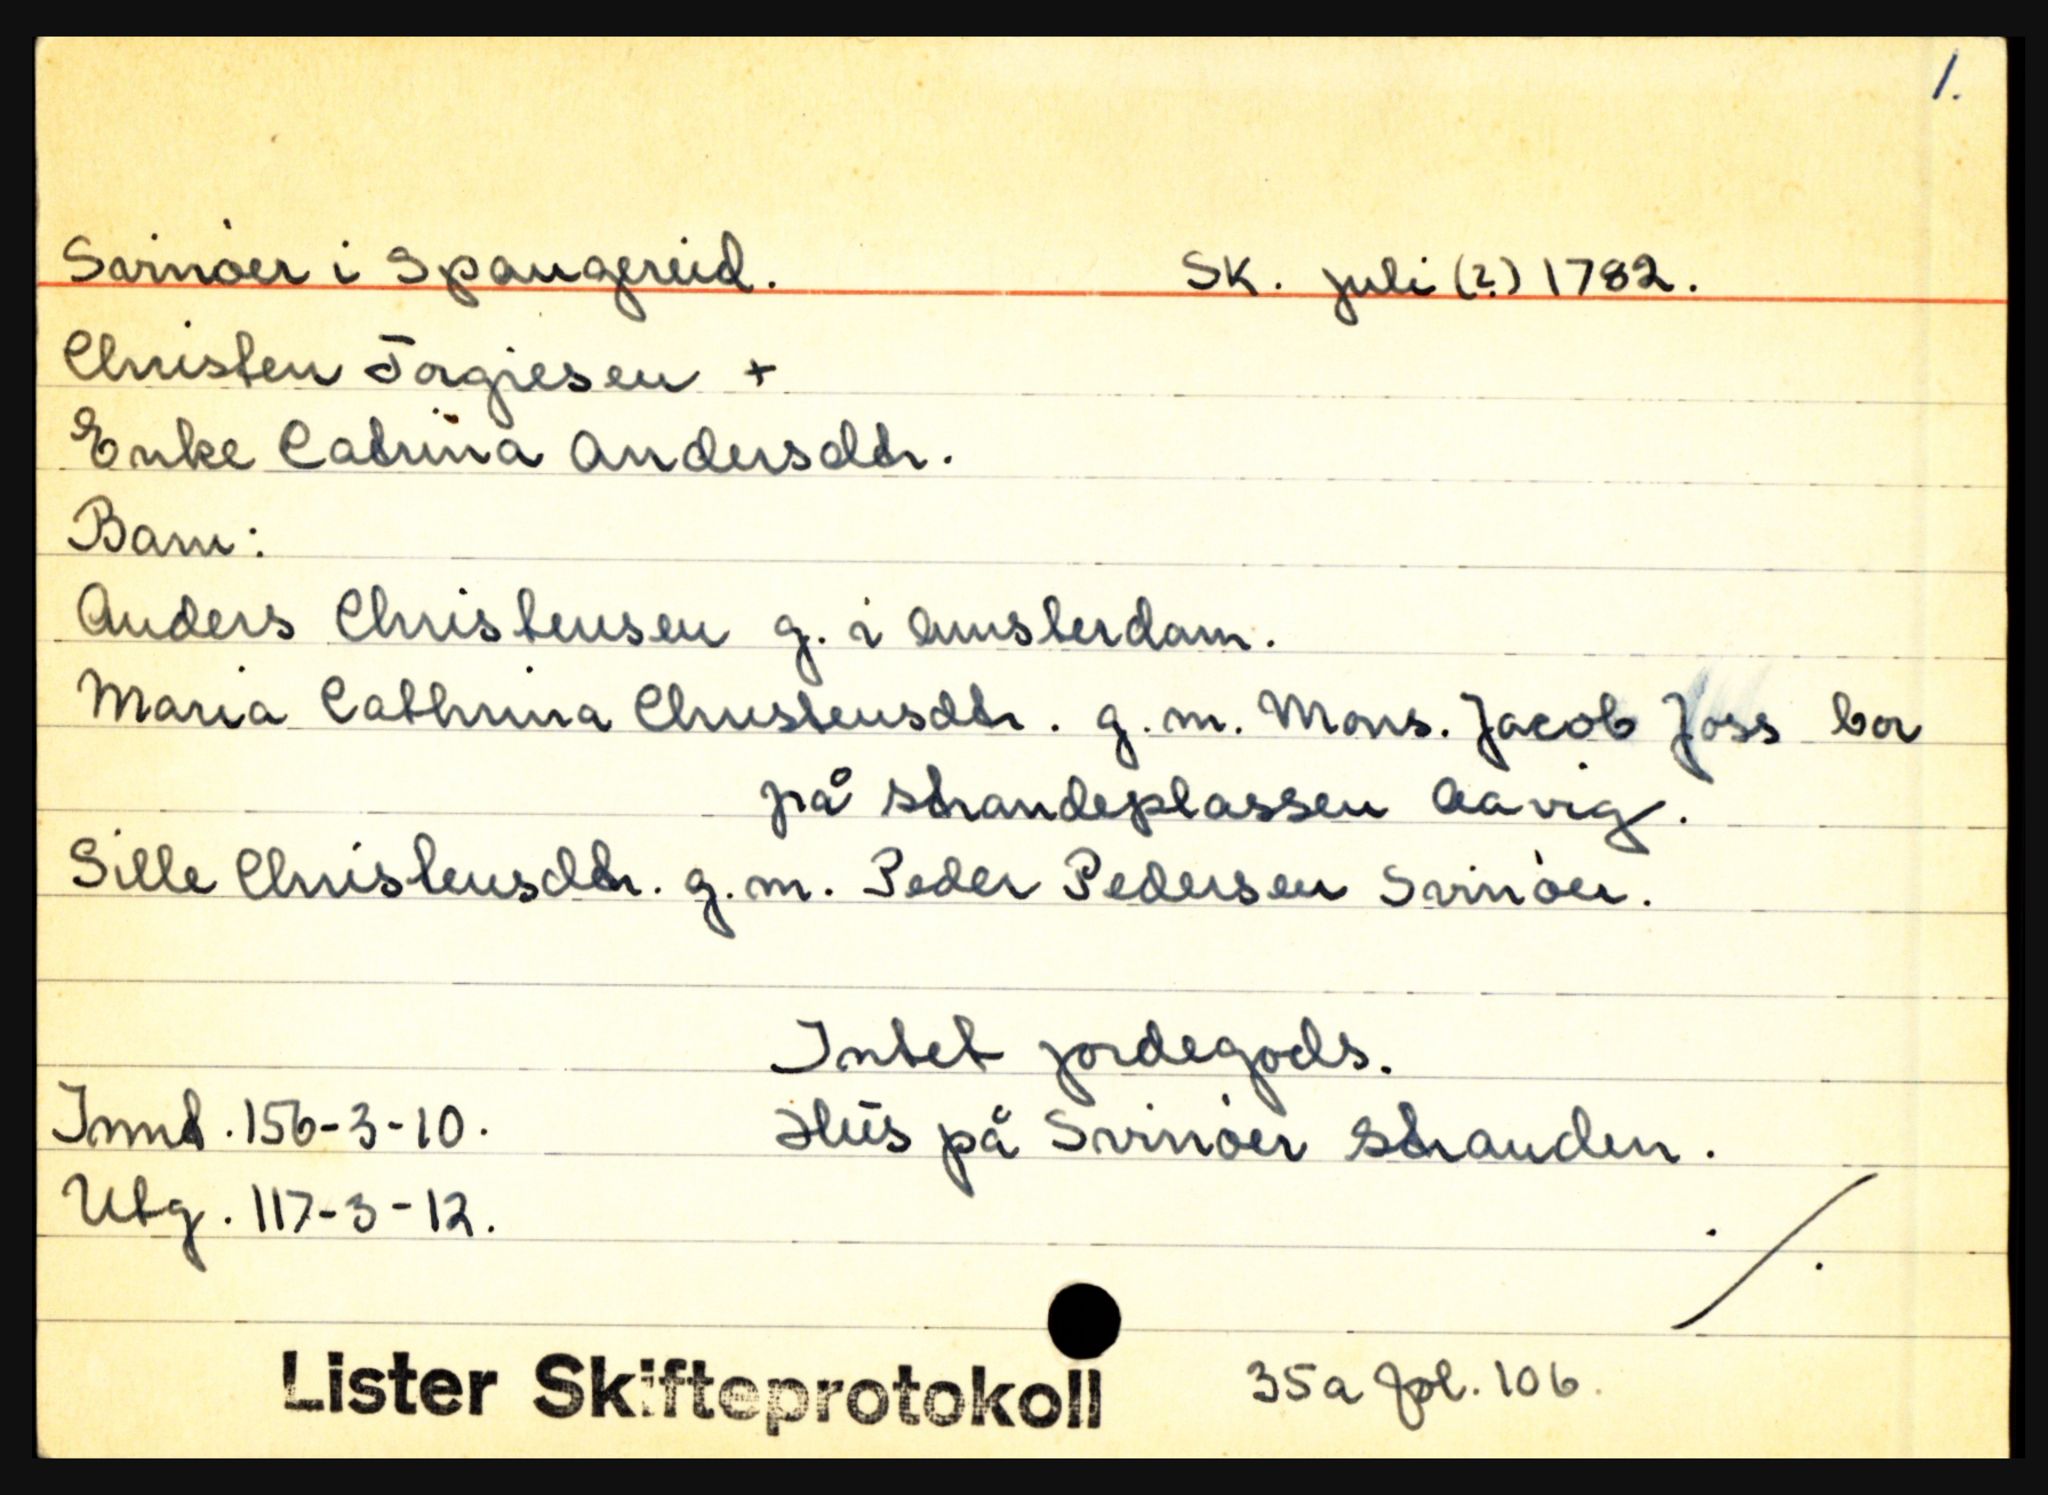 1.
Svinöer i Spangereid. Sk. juli (?) 1782.
Christen Torgiesen +
Enke Catrina Andersdtr.
Barn:
Anders Christensen g. i Amsterdam.
Maria Cathrina Christensdtr. g. m. Mons. Jacob Joss bor
på strandeplassen Aavig.
Sille Christensdtr. g. m. Peder Pedersen Svinöer.
Intet jordegods.
Innt. 156-3-10. Hus på Svinöer stranden.
Utg. 117-3-12.
Lister Skifteprotokoll 35a fol. 106.